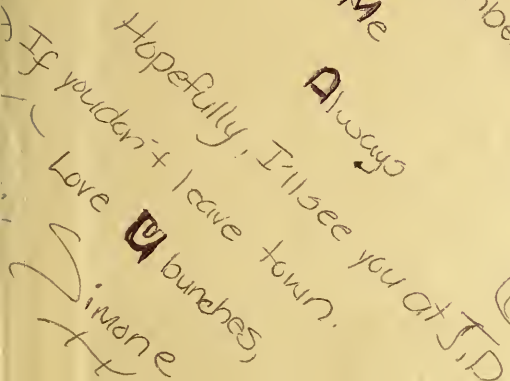 Me
Always
Hopefully, I'll see you at J.D
If you don't leave town.
Love U bunches,
Simone